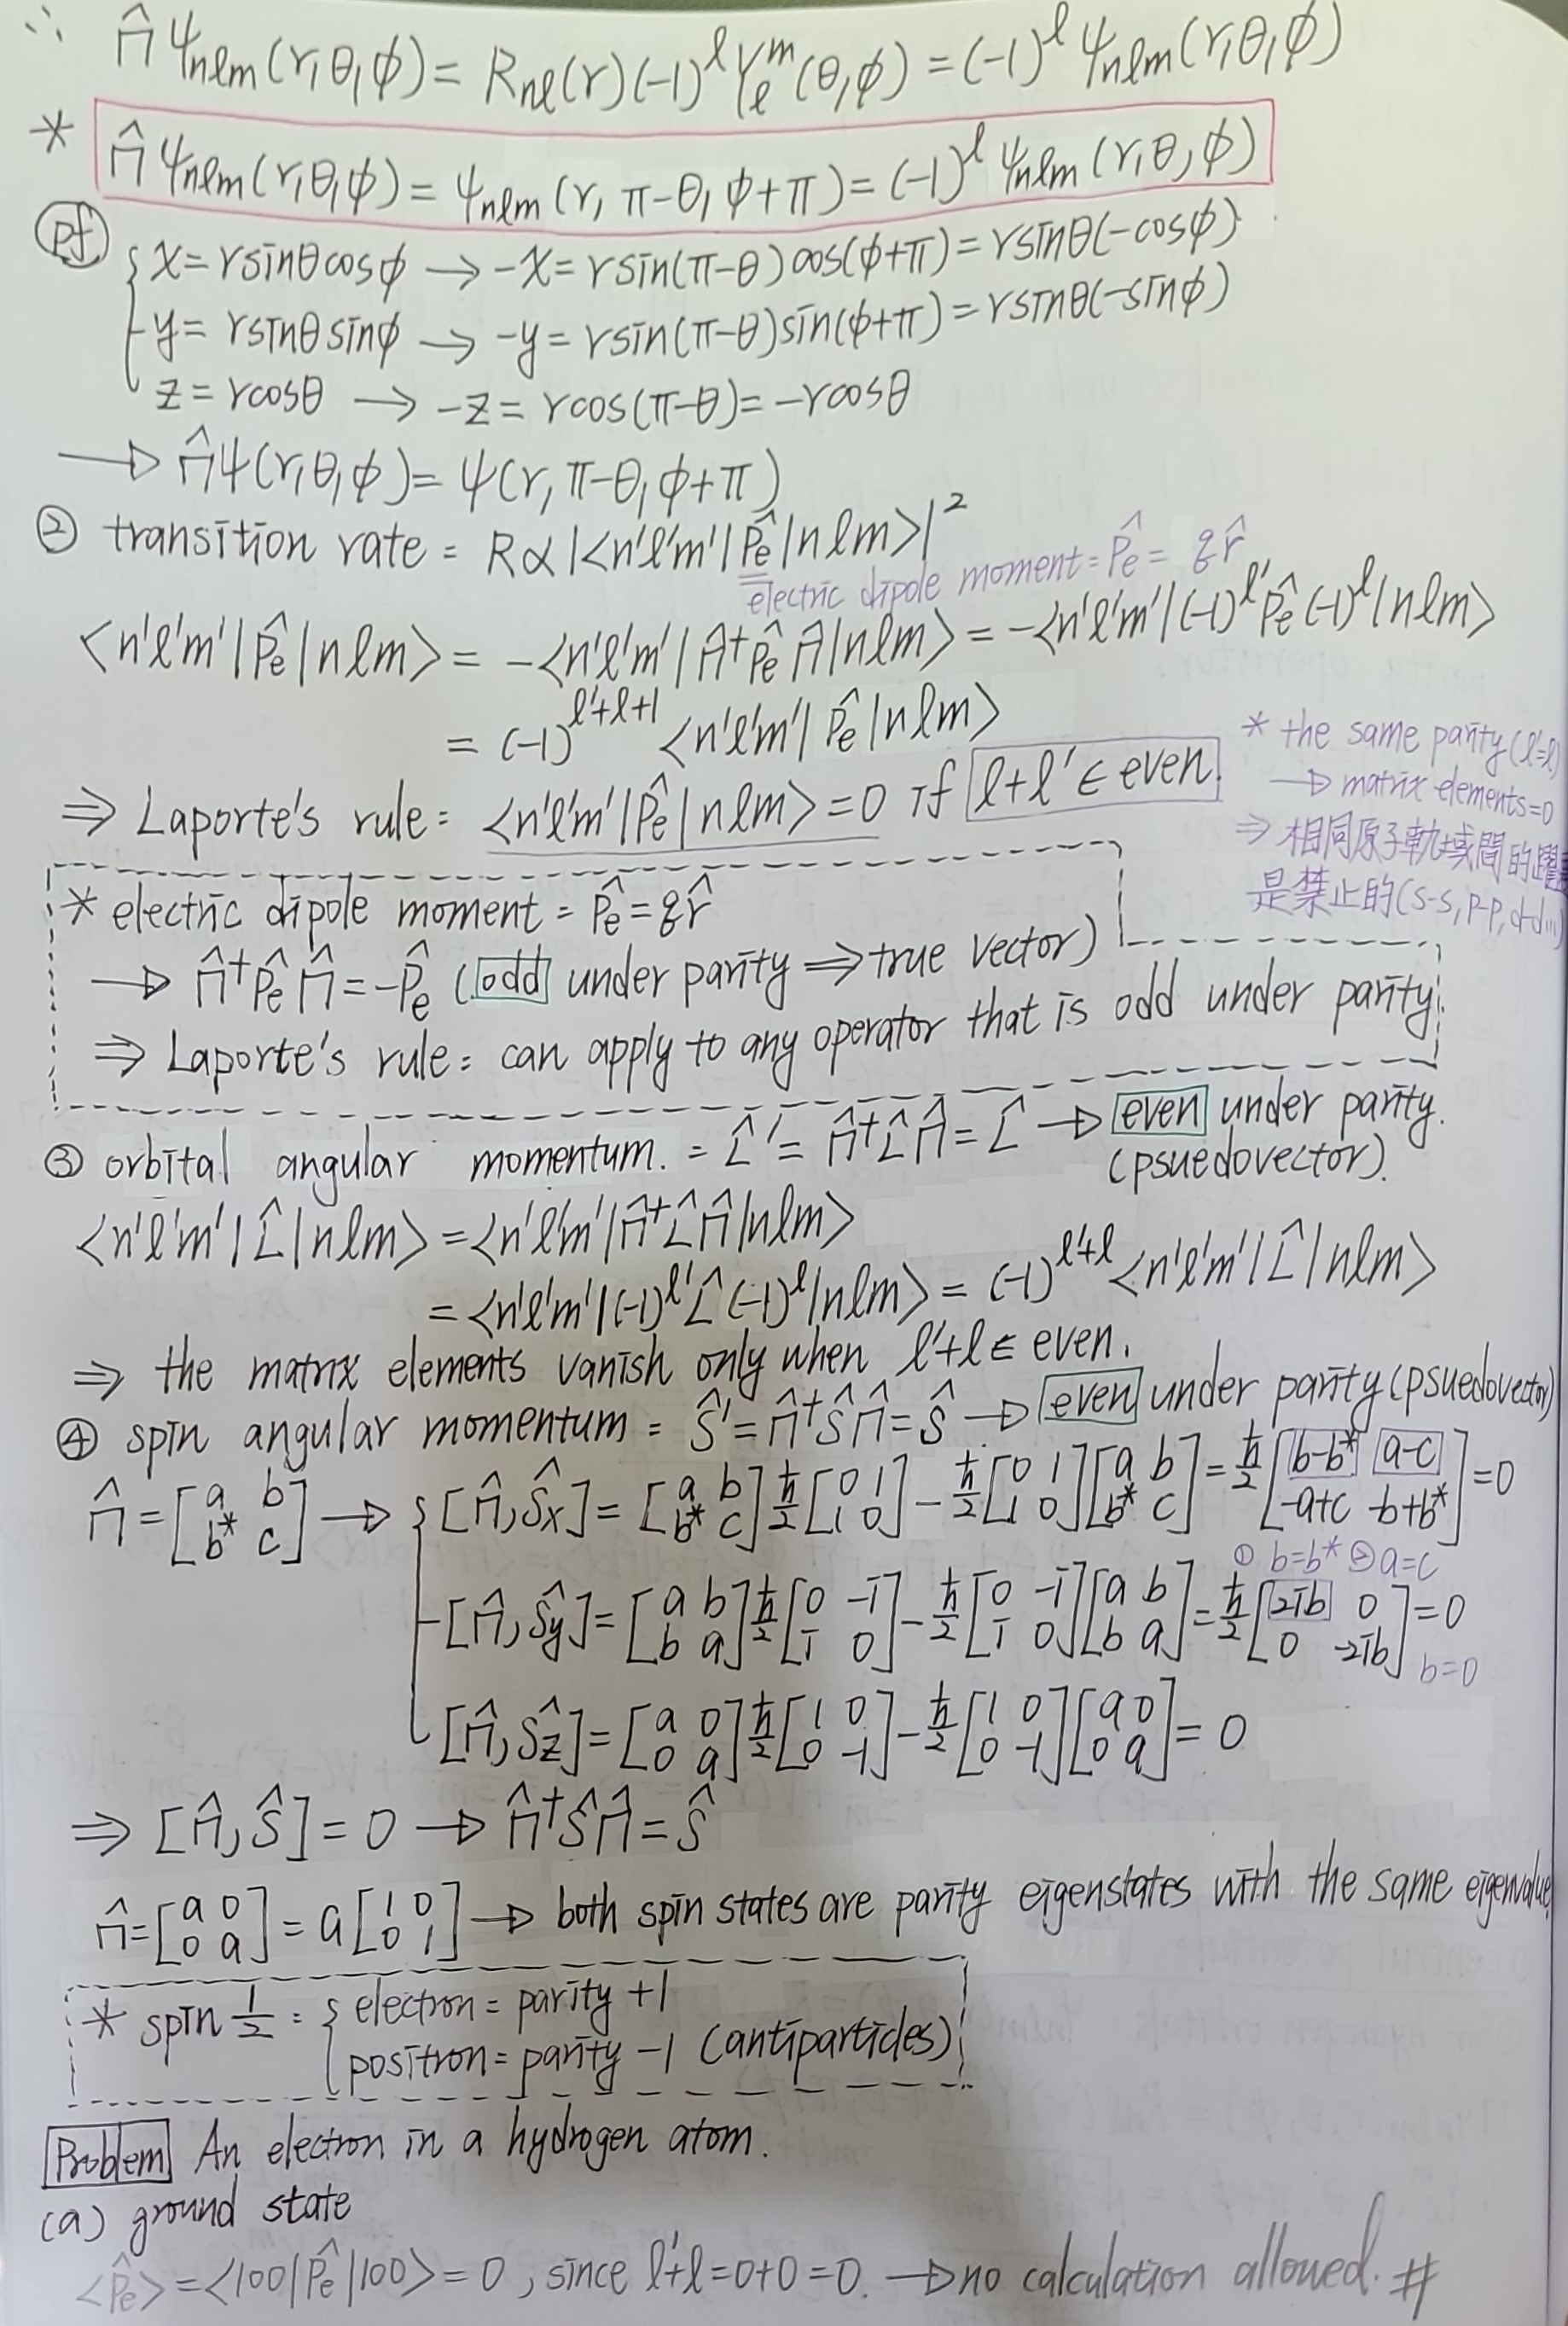 ∴ Π̂ψnlm(r,θ,ϕ) = Rnl(r)(-1)^l Yl^m(θ,ϕ) = (-1)^l ψnlm(r,θ,ϕ)
* Π̂ψnlm(r,θ,ϕ) = ψnlm(r, π-θ, ϕ+π) = (-1)^l ψnlm(r,θ,ϕ)
pf { x = rsinθcosϕ → -x = rsin(π-θ)cos(ϕ+π) = rsinθ(-cosϕ)
y = rsinθsinϕ → -y = rsin(π-θ)sin(ϕ+π) = rsinθ(-sinϕ)
z = rcosθ → -z = rcos(π-θ) = -rcosθ
→ Π̂ψ(r,θ,ϕ) = ψ(r, π-θ, ϕ+π)
② transition rate = R∝|<n'l'm'|P̂e|nlm>|²
electric dipole moment = P̂e = qr̂
<n'l'm'|P̂e|nlm> = -<n'l'm'|Π̂†P̂eΠ̂|nlm> = -<n'l'm'|(-1)^l' P̂e(-1)^l|nlm>
= (-1)^(l'+l+1) <n'l'm'|P̂e|nlm>
* the same parity (l'=l)
→ matrix elements=0
⇒ 相同原子軌域間的躍
是禁止的(s-s, p-p, d-d...)
⇒ Laporte's rule = <n'l'm'|P̂e|nlm> = 0 if l+l' ∈ even.
* electric dipole moment = P̂e = qr̂
→ Π̂†P̂eΠ̂ = -P̂e (odd under parity ⇒ true vector)
⇒ Laporte's rule = can apply to any operator that is odd under parity.
③ orbital angular momentum. = L̂' = Π̂†L̂Π̂ = L̂ → even under parity.
(psuedovector).
<n'l'm'|L̂|nlm> = <n'l'm'|Π̂†L̂Π̂|nlm>
= <n'l'm'|(-1)^l' L̂(-1)^l|nlm> = (-1)^(l'+l) <n'l'm'|L̂|nlm>
⇒ the matrix elements vanish only when l'+l ∈ even.
④ spin angular momentum = Ŝ' = Π̂†ŜΠ̂ = Ŝ → even under parity (psuedovector)
Π̂ = [a b; b* c] → { [Π̂,Ŝx] = [a b; b* c] ħ/2 [0 1; 1 0] - ħ/2 [0 1; 1 0][a b; b* c] = ħ/2 [b-b* a-c; -a+c -b+b*] = 0
① b=b* ② a=c
[Π̂,Ŝy] = [a b; b a] ħ/2 [0 -i; i 0] - ħ/2 [0 -i; i 0][a b; b a] = ħ/2 [2ib 0; 0 -2ib] = 0
b=0
[Π̂,Ŝz] = [a 0; 0 a] ħ/2 [1 0; 0 -1] - ħ/2 [1 0; 0 -1][a 0; 0 a] = 0
⇒ [Π̂,Ŝ] = 0 → Π̂†ŜΠ̂ = Ŝ
Π̂ = [a 0; 0 a] = a[1 0; 0 1] → both spin states are parity eigenstates with the same eigenvalue
* spin 1/2 = { electron = parity +1
positron = parity -1 (antiparticles)
Problem An electron in a hydrogen atom.
(a) ground state
<P̂e> = <100|P̂e|100> = 0, since l'+l=0+0=0. → no calculation allowed. #